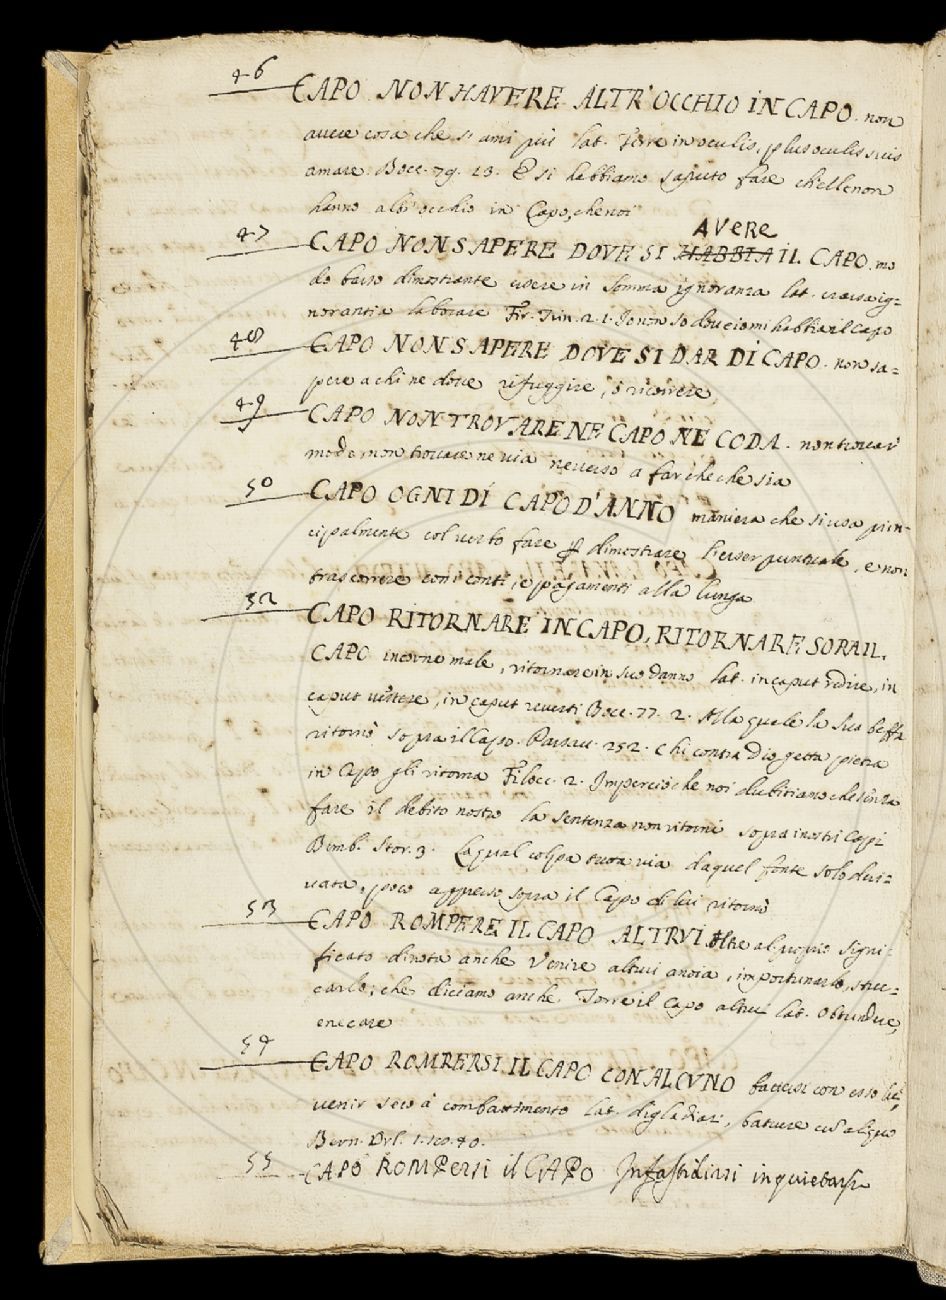 46
CAPO NON HAVERE ALTR'OCCHIO IN CAPO. non
avere cosa che si ami più lat. ferre in oculis, plus oculis suis
amare. Bocc. 79. 13. E si habbiamo saputo fare ch'elle non
hanno altr'occhio in Capo, che noi
AVERE
47
CAPO NON SAPERE DOVE SI HABBIA IL CAPO. mo
do basso dimostrante essere in somma ignoranza lat. crassa ig=
norantia laborare Fir. Trin. 2. 1. Io non so dove io mi habbia il capo
48
CAPO NON SAPERE DOVE SI DAR DI CAPO. non sa=
pere a chi ne dove rifuggire, o ricorrere,
49
CAPO NON TROVARE NE CAPO NE CODA. non trovar
modo, non trovare ne via ne verso a far che che sia
50
CAPO OGNI DÍ CAPO D'ANNO maniera che si usa prin=
cipalmente col verbo fare p dimostrare l'esser puntuale, e non
trascorrere con i conti, e pagamenti alla lunga
52
CAPO RITORNARE IN CAPO, RITORNARE SOPRA IL
CAPO incorne male, ritornare in suo danno lat. in caput redire, in
caput vertere, in caput reverti Bocc. 77. 2. Alla quale la sua beffa
ritornò sopra il Capo. Passav. 252. Chi contra Dio getta pietra
in Capo gli ritorna Filoc. 2. Imperciò che noi dubitiamo che senza
fare il debito nostro la sentenza non ritorni sopra i nostri Capi
Bemb. Stor. 3. La qual colpa tutta via da quel fonte solo deri=
vata, poco appresso sopra il Capo di lui ritornò
53
CAPO ROMPERE IL CAPO ALTRVI oltre al proprio signi=
ficato dinota anche venire altrui a noia, importunarlo, stuc=
carlo; che diciamo anche. Torre il Capo altrui lat. obtundere,
enecare
54
CAPO ROMPERSI IL CAPO CON ALCVNO battersi con esso lui,
venir seco à combattimento lat. digladiari, batuere cū aliquo
Bern. Orl. 1. 20. 40.
55
CAPO ROMPersi il CAPO Infastidirsi inquietarsi